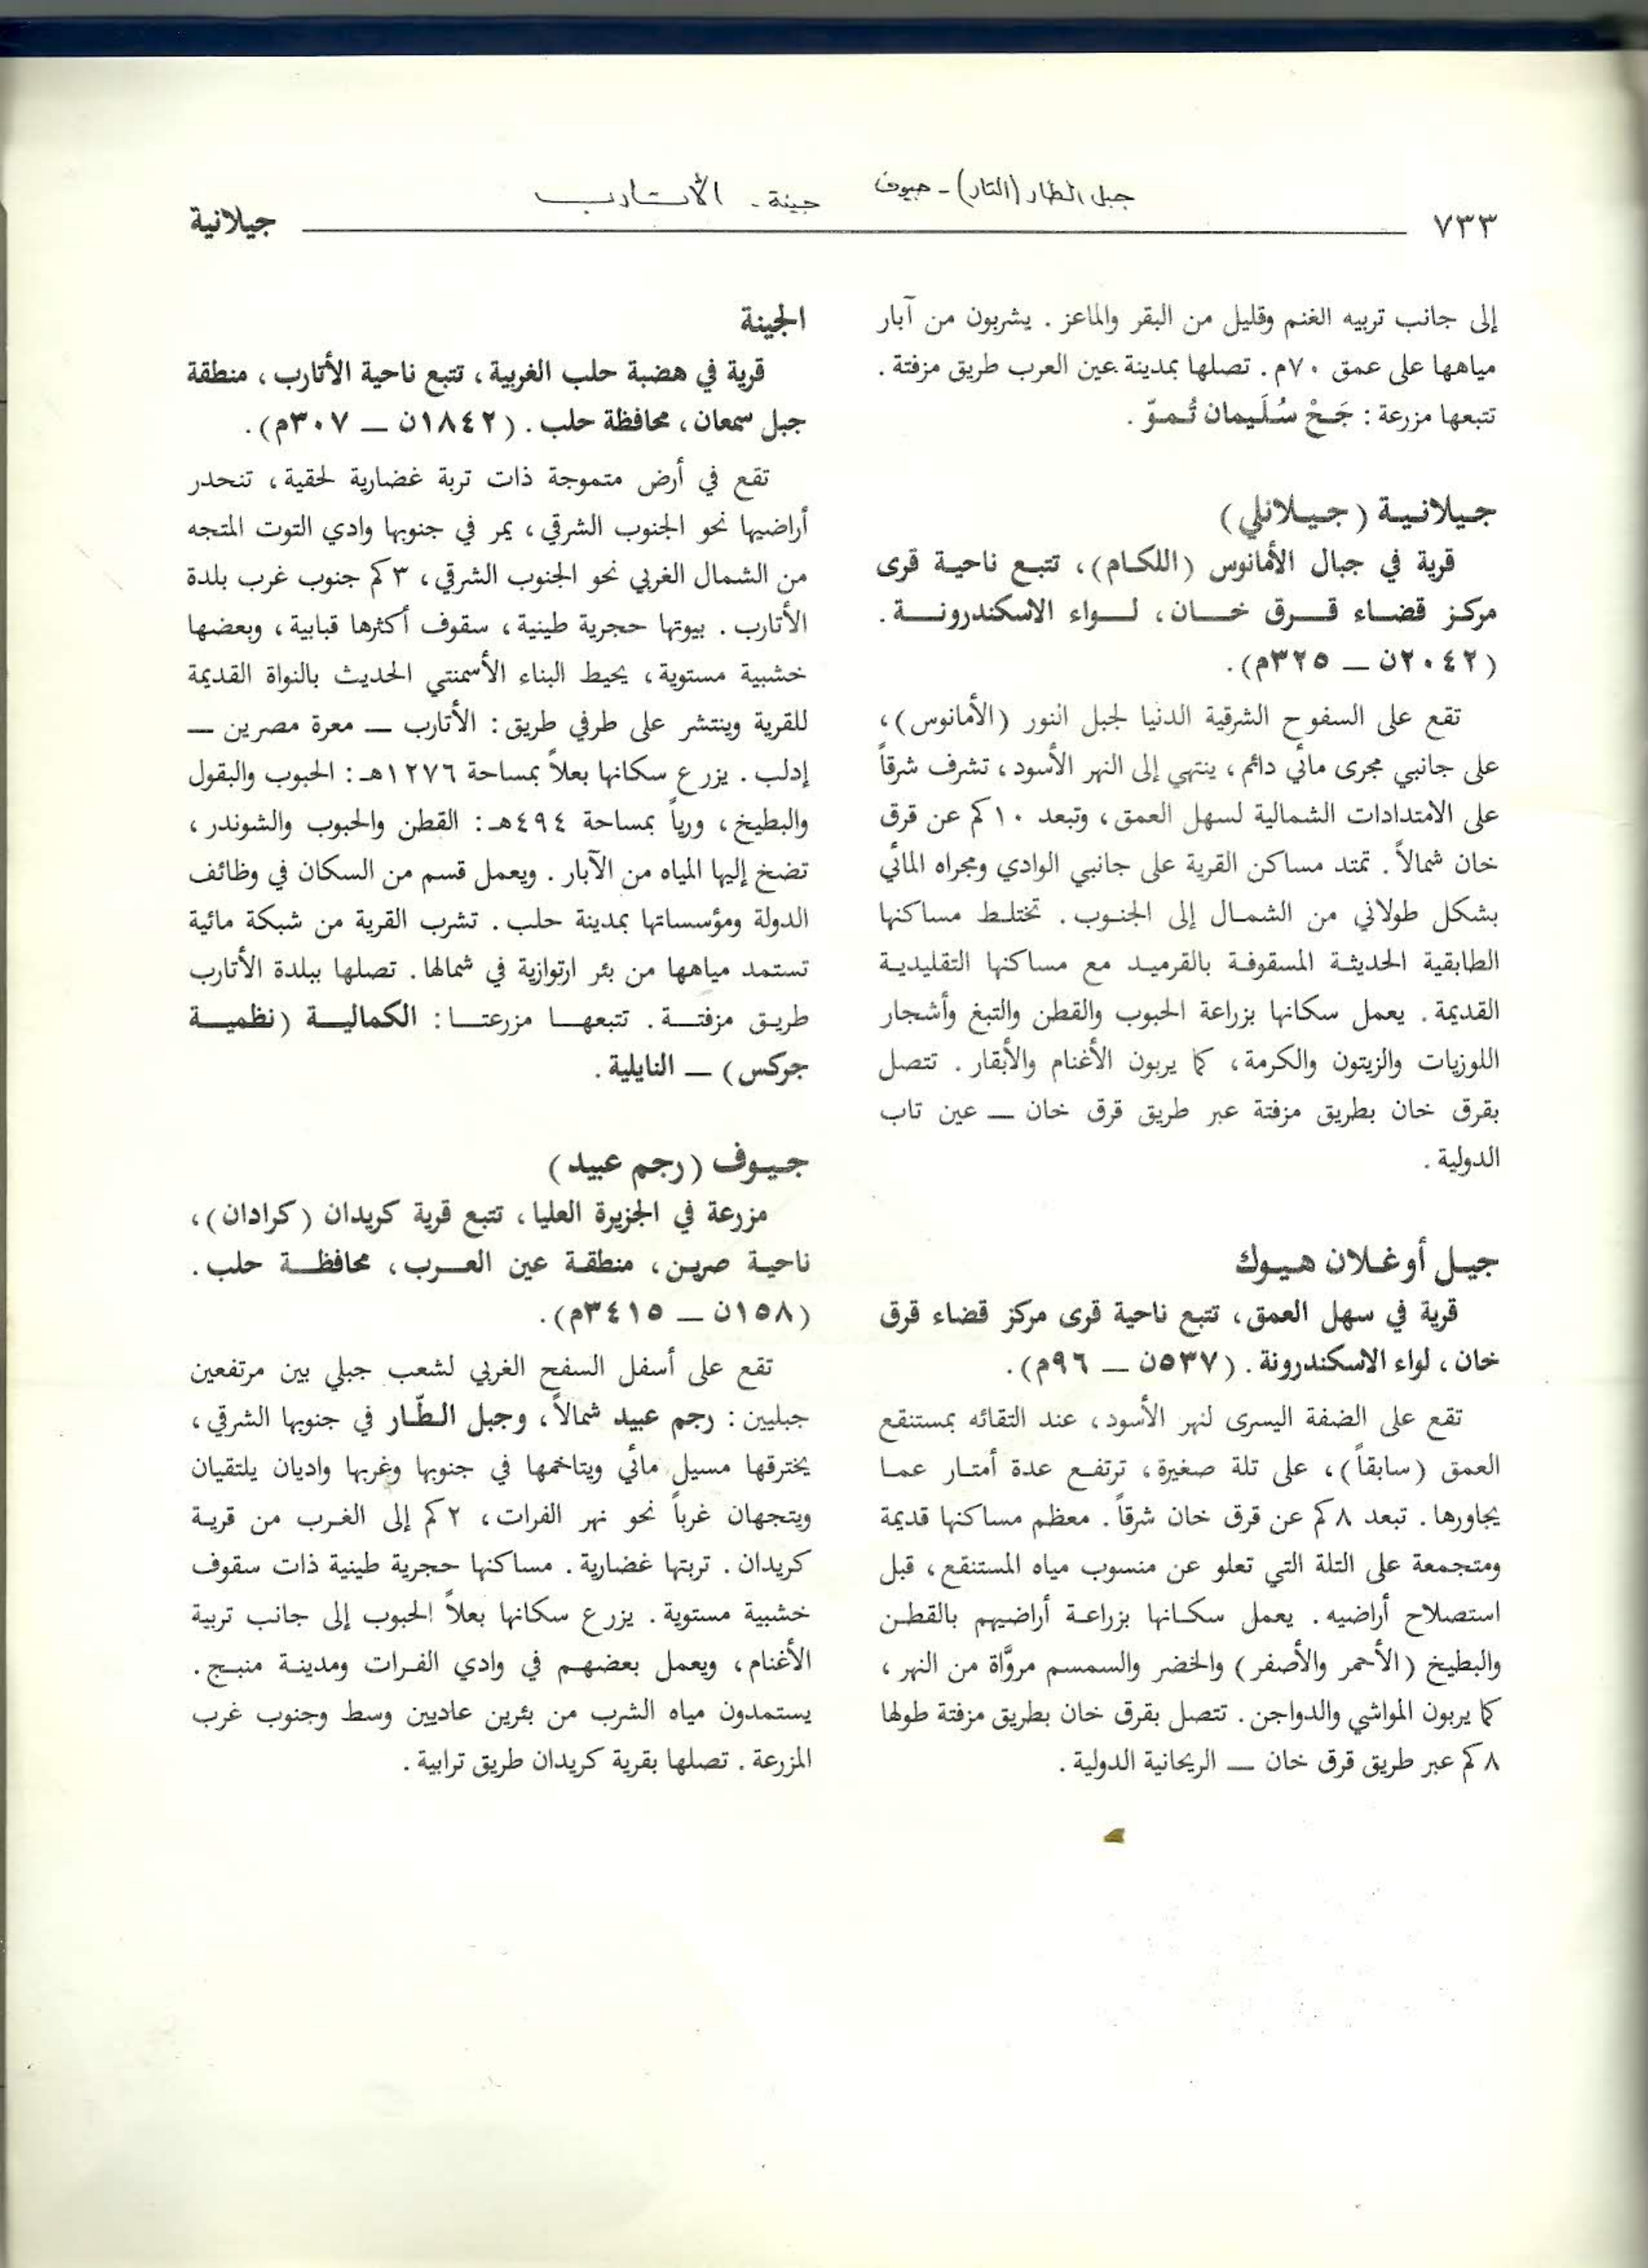 جبل الطار (التار) - جيوف
جينة - الأتارب
٧٣٣
جيلانية
إلى جانب تربيه الغنم وقليل من البقر والماعز . يشربون من آبار
مياهها على عمق ٧٠م . تصلها بمدينة عين العرب طريق مزفتة .
تتبعها مزرعة : جَحْ سُلَيمان تُمـوّ .
جـيـلانـيـة (جـيـلانلي)
قرية في جبال الأمانوس (اللكـام)، تتبـع ناحيـة قرى
مركـز قضـاء قـرق خـان، لـواء الاسكندرونـة .
(٢٠٤٢ن ــ ٣٢٥م).
تقع على السفوح الشرقية الدنيا لجبل النور (الأمانوس)،
على جانبي مجرى مائي دائم، ينتهي إلى النهر الأسود، تشرف شرقاً
على الامتدادات الشمالية لسهل العمق، وتبعد ١٠كم عن قرق
خان شمالاً . تمتد مساكن القرية على جانبي الوادي ومجراه المائي
بشكل طولاني من الشمـال إلى الجنـوب. تختلـط مساكنها
الطابقية الحديثـة المسقوفـة بالقرميـد مع مساكنها التقليديـة
القديمة. يعمل سكانها بزراعة الحبوب والقطن والتبغ وأشجار
اللوزيات والزيتون والكرمة، كما يربون الأغنام والأبقار. تتصل
بقرق خان بطريق مزفتة عبر طريق قرق خان ــ عين تاب
الدولية .
جيـل أوغـلان هـيـوك
قرية في سهل العمق، تتبع ناحية قرى مركز قضاء قرق
خان ، لواء الاسكندرونة . (٥٣٧ن ــ ٩٦م).
تقع على الضفة اليسرى لنهر الأسود، عند التقائه بمستنقع
العمق (سابقاً)، على تلة صغيرة، ترتفـع عدة أمتـار عمـا
يجاورها. تبعد ٨كم عن قرق خان شرقاً. معظم مساكنها قديمة
ومتجمعة على التلة التي تعلو عن منسوب مياه المستنقع، قبل
استصلاح أراضيه. يعمل سكـانها بزراعـة أراضيهم بالقطـن
والبطيخ (الأحمر والأصفر) والخضر والسمسم مروَّاة من النهر ،
كما يربون المواشي والدواجن. تتصل بقرق خان بطريق مزفتة طولها
٨كم عبر طريق قرق خان ــ الريحانية الدولية .
الجينة
قرية في هضبة حلب الغربية، تتبع ناحية الأتارب، منطقة
جبل سمعان، محافظة حلب. (١٨٤٢ن ــ ٣٠٧م).
تقع في أرض متموجة ذات تربة غضارية لحقية، تنحدر
أراضيها نحو الجنوب الشرقي، يمر في جنوبها وادي التوت المتجه
من الشمال الغربي نحو الجنوب الشرقي، ٣كم جنوب غرب بلدة
الأتارب. بيوتها حجرية طينية، سقوف أكثرها قبابية، وبعضها
خشبية مستوية، يحيط البناء الأسمنتي الحديث بالنواة القديمة
للقرية وينتشر على طرفي طريق: الأتارب ــ معرة مصرين ــ
إدلب. يزرع سكانها بعلاً بمساحة ١٢٧٦هـ: الحبوب والبقول
والبطيخ، ورياً بمساحة ٤٩٤هـ: القطن والحبوب والشوندر،
تضخ إليها المياه من الآبار. ويعمل قسم من السكان في وظائف
الدولة ومؤسساتها بمدينة حلب. تشرب القرية من شبكة مائية
تستمد مياهها من بئر ارتوازية في شمالها. تصلها ببلدة الأتارب
طريـق مزفتـة. تتبعهـا مزرعتـا: الكماليـة (نظميـة
جركس) ــ النايلية .
جـيـوف (رجم عبيد)
مزرعة في الجزيرة العليا، تتبع قرية كريدان (كرادان)،
ناحيـة صريـن، منطقـة عين العـرب، محافظـة حلب.
(١٥٨ن ــ ٣٤١٥م).
تقع على أسفل السفح الغربي لشعب جبلي بين مرتفعين
جبليين: رجم عبيد شمالاً، وجبل الطّار في جنوبها الشرقي،
يخترقها مسيل مائي ويتاخمها في جنوبها وغربها واديان يلتقيان
ويتجهان غرباً نحو نهر الفرات، ٢كم إلى الغـرب من قريـة
كريدان. تربتها غضارية. مساكنها حجرية طينية ذات سقوف
خشبية مستوية. يزرع سكانها بعلاً الحبوب إلى جانب تربية
الأغنام، ويعمل بعضهـم في وادي الفـرات ومدينـة منبـج.
يستمدون مياه الشرب من بئرين عاديين وسط وجنوب غرب
المزرعة. تصلها بقرية كريدان طريق ترابية .